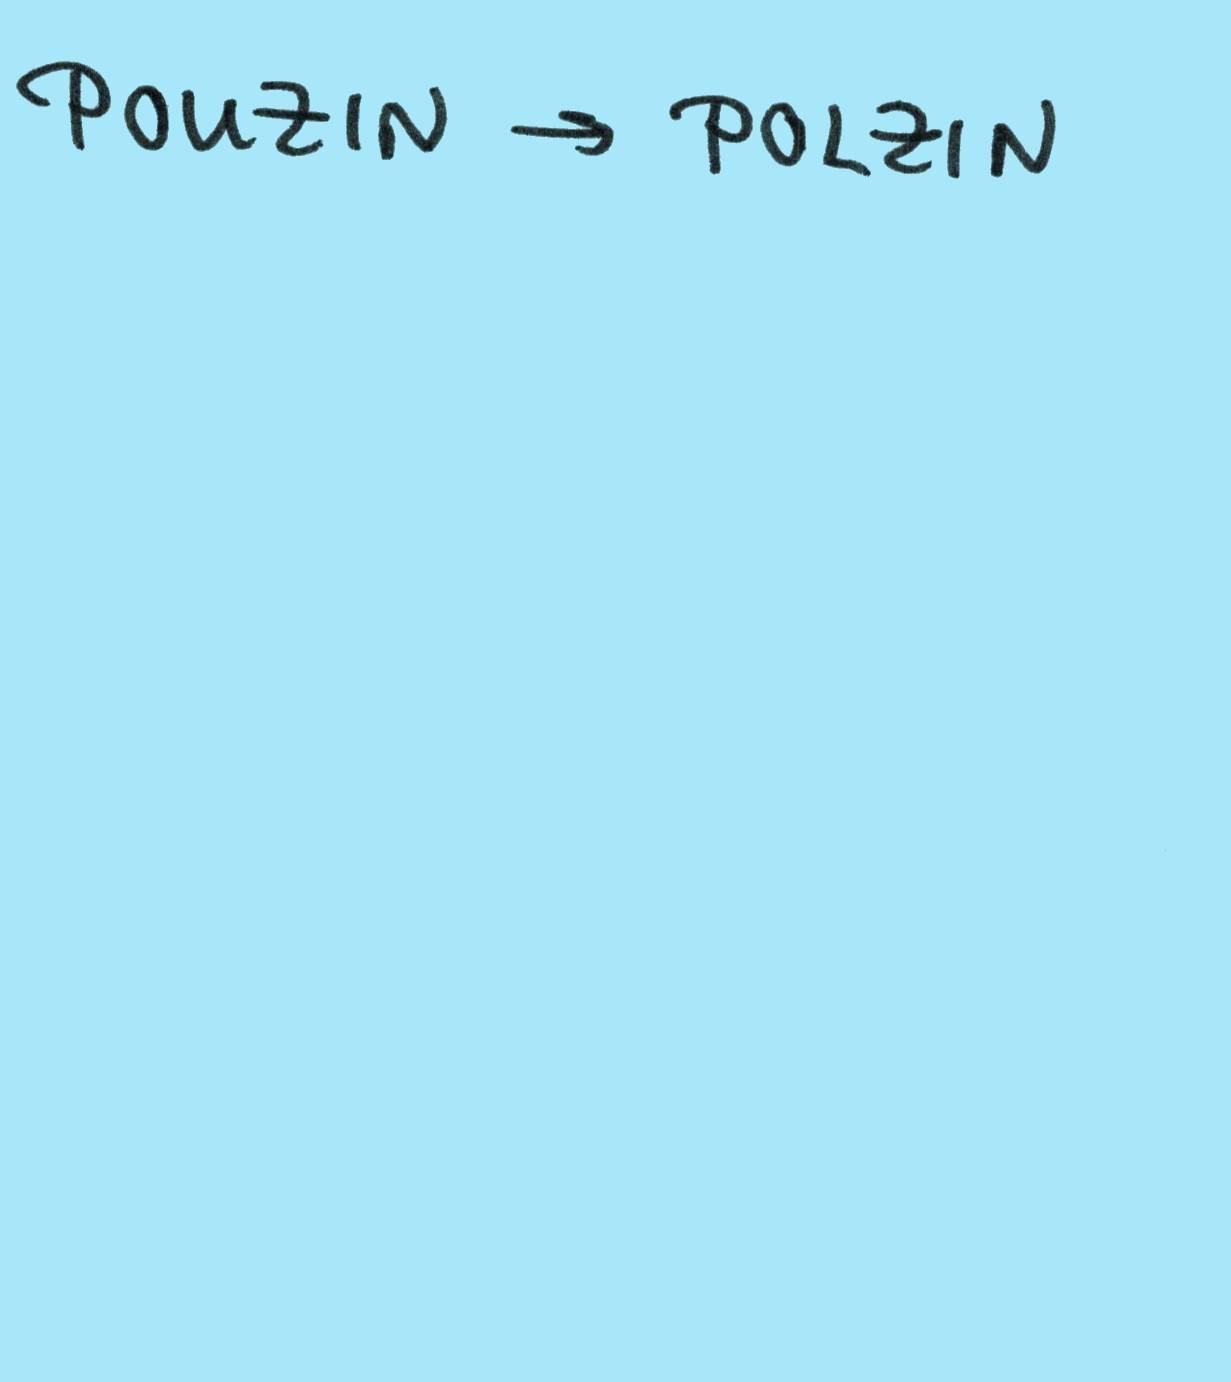 POUZIN → POLZIN